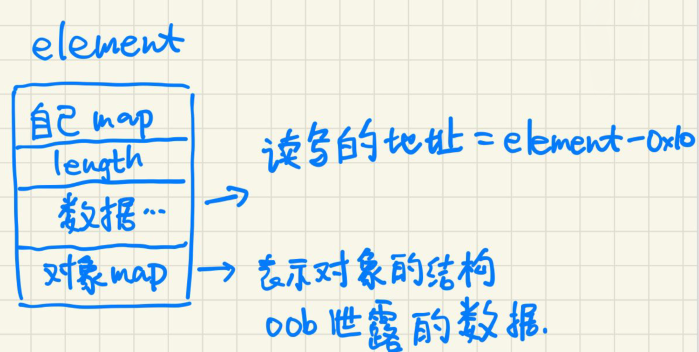 element
自己map
length
数据…
对象map
读写的地址=element-0x10
表示对象的结构
oob泄露的数据.